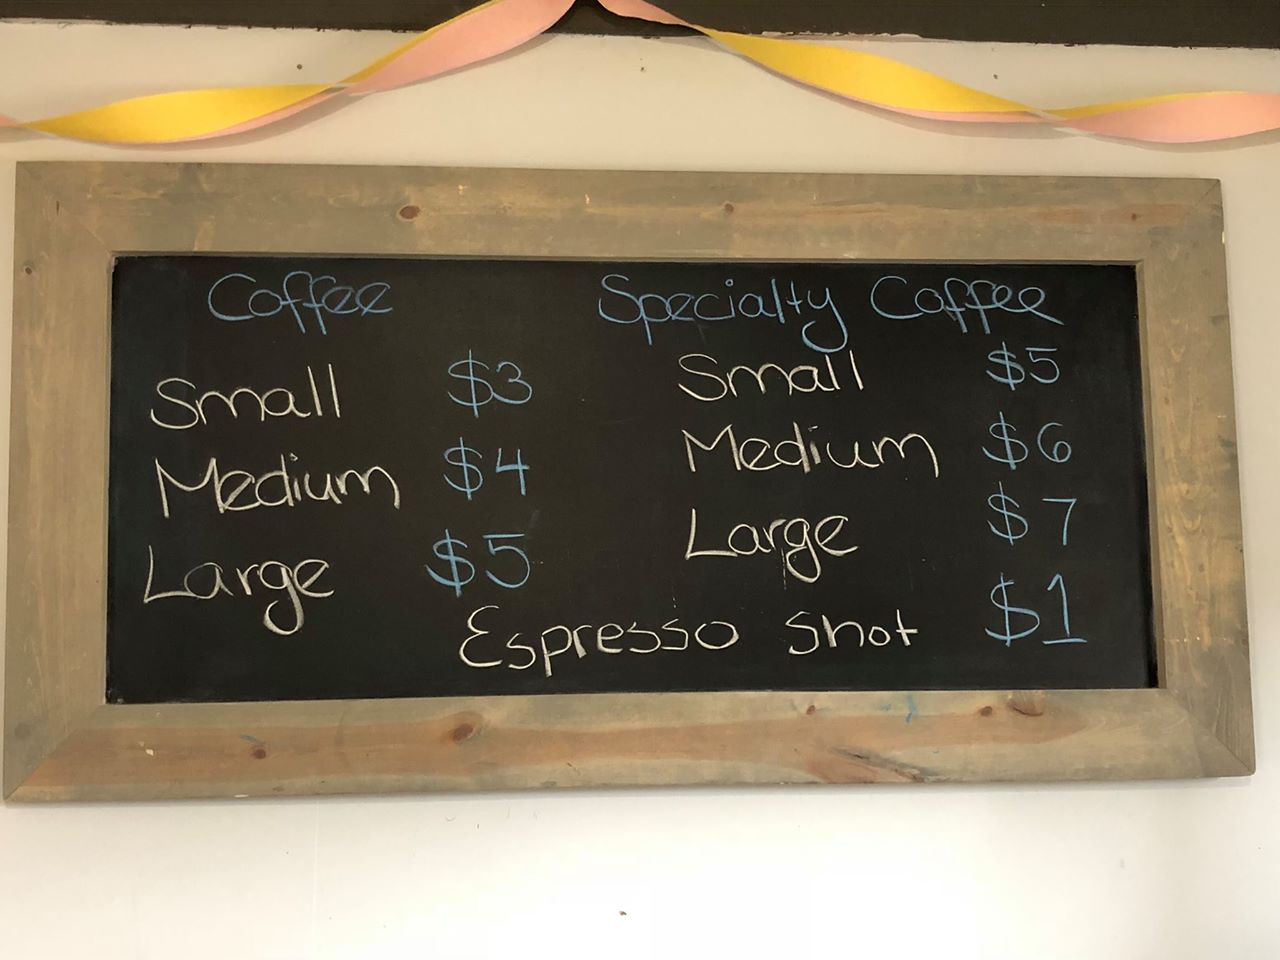 Coffee
Small $3
Medium $4
Large $5
Specialty Coffee
Small $5
Medium $6
Large $7
Espresso Shot $1